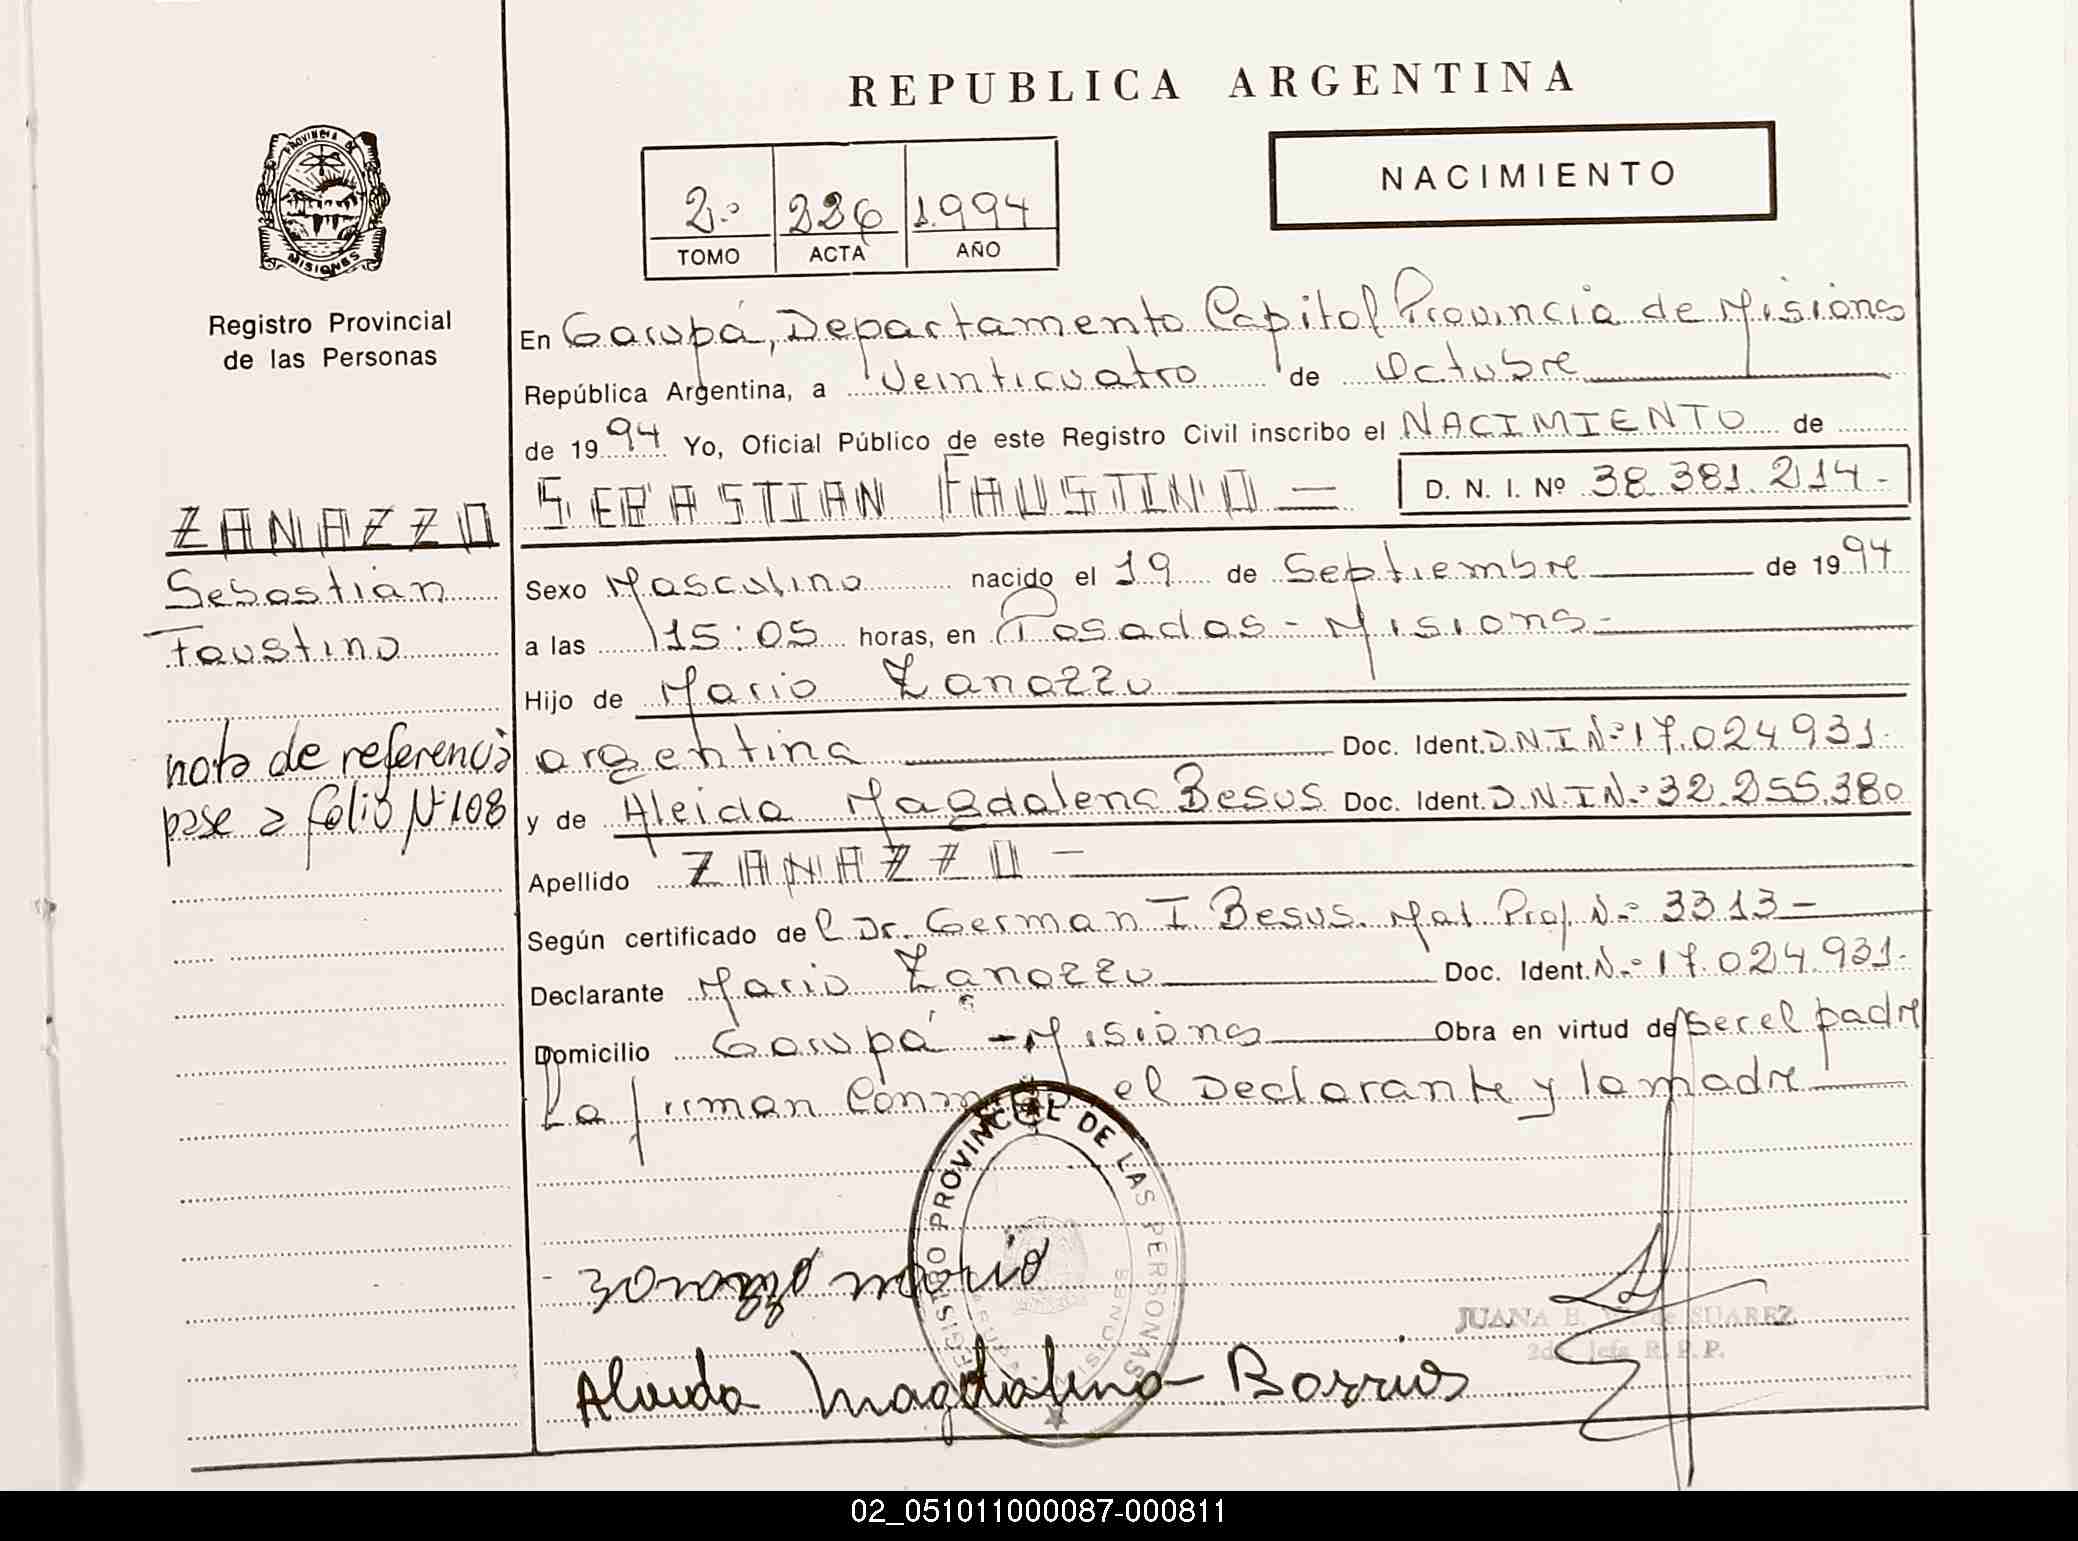 REPUBLICA ARGENTINA
NACIMIENTO
2º 226 1.994
TOMO ACTA AÑO
PROVINCIA DE
MISIONES
Registro Provincial
de las Personas
ZANAZZO
Sebastian
Faustino
nota de referencia
pase a folio Nº 108
En Garupá, Departamento Capital Provincia de Misiones
República Argentina, a Veinticuatro de Octubre
de 1994 Yo, Oficial Público de este Registro Civil inscribo el NACIMIENTO de
SEBASTIAN FAUSTINO — D. N. I. Nº 38.381.214.-
Sexo Masculino nacido el 19 de Septiembre de 1994
a las 15:05 horas, en Posadas - Misiones.-
Hijo de Mario Zanazzo
argentina Doc. Ident. D.N.I Nº 17.024.931.
y de Aleida Magdalena Doc. Ident. D.N.I N.º 32.255.380
Apellido ZANAZZO -
Según certificado de l Dr. German I. Mat. Prof. N.º 3313 -
Declarante Mario Zanazzo Doc. Ident. N.º 17.024.931.
Domicilio Garupá - Misiones Obra en virtud de ser el padre
La firman Conmigo, el Declarante y la madre
REGISTRO PROVINCIAL DE LAS PERSONAS
MISIONES
zanazzo mario
Aleida Magdalena
JUANA B. de SUAREZ
2da. Jefa R. P. P.
02_051011000087-000811